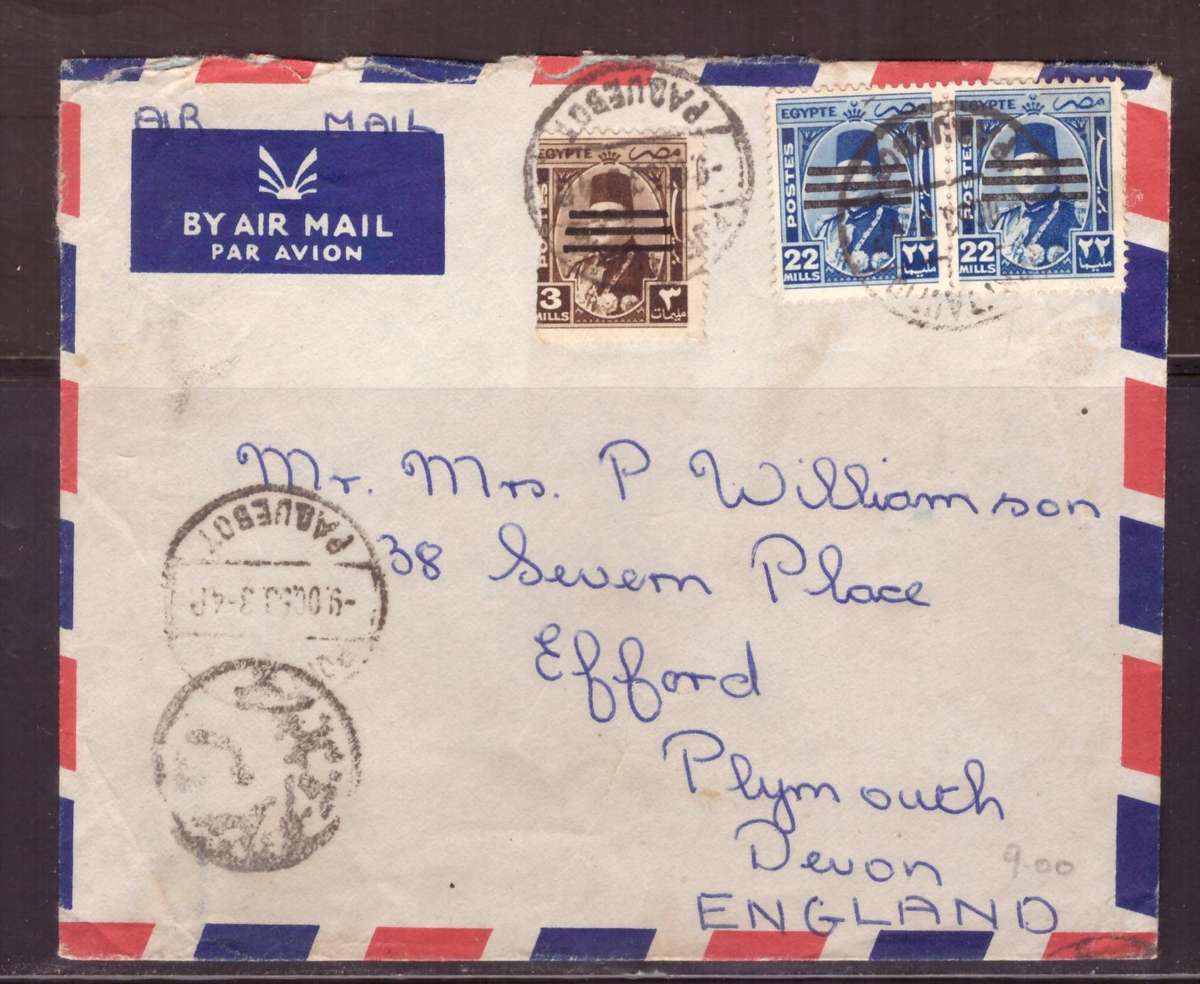 AIR MAIL
BY AIR MAIL
PAR AVION
EGYPTE مصر
POSTES
3 ٣
MILLS مليمات
PAQUEBOT
EGYPTE مصر
POSTES
22 ٢٢
MILLS مليما
EGYPTE مصر
22 ٢٢
MILLS مليما
Mr. Mrs. P Williamson
38 Severn Place
Efford
Plymouth
Devon
ENGLAND
9.00
PAQUEBOT
-9.OC53.3-4P